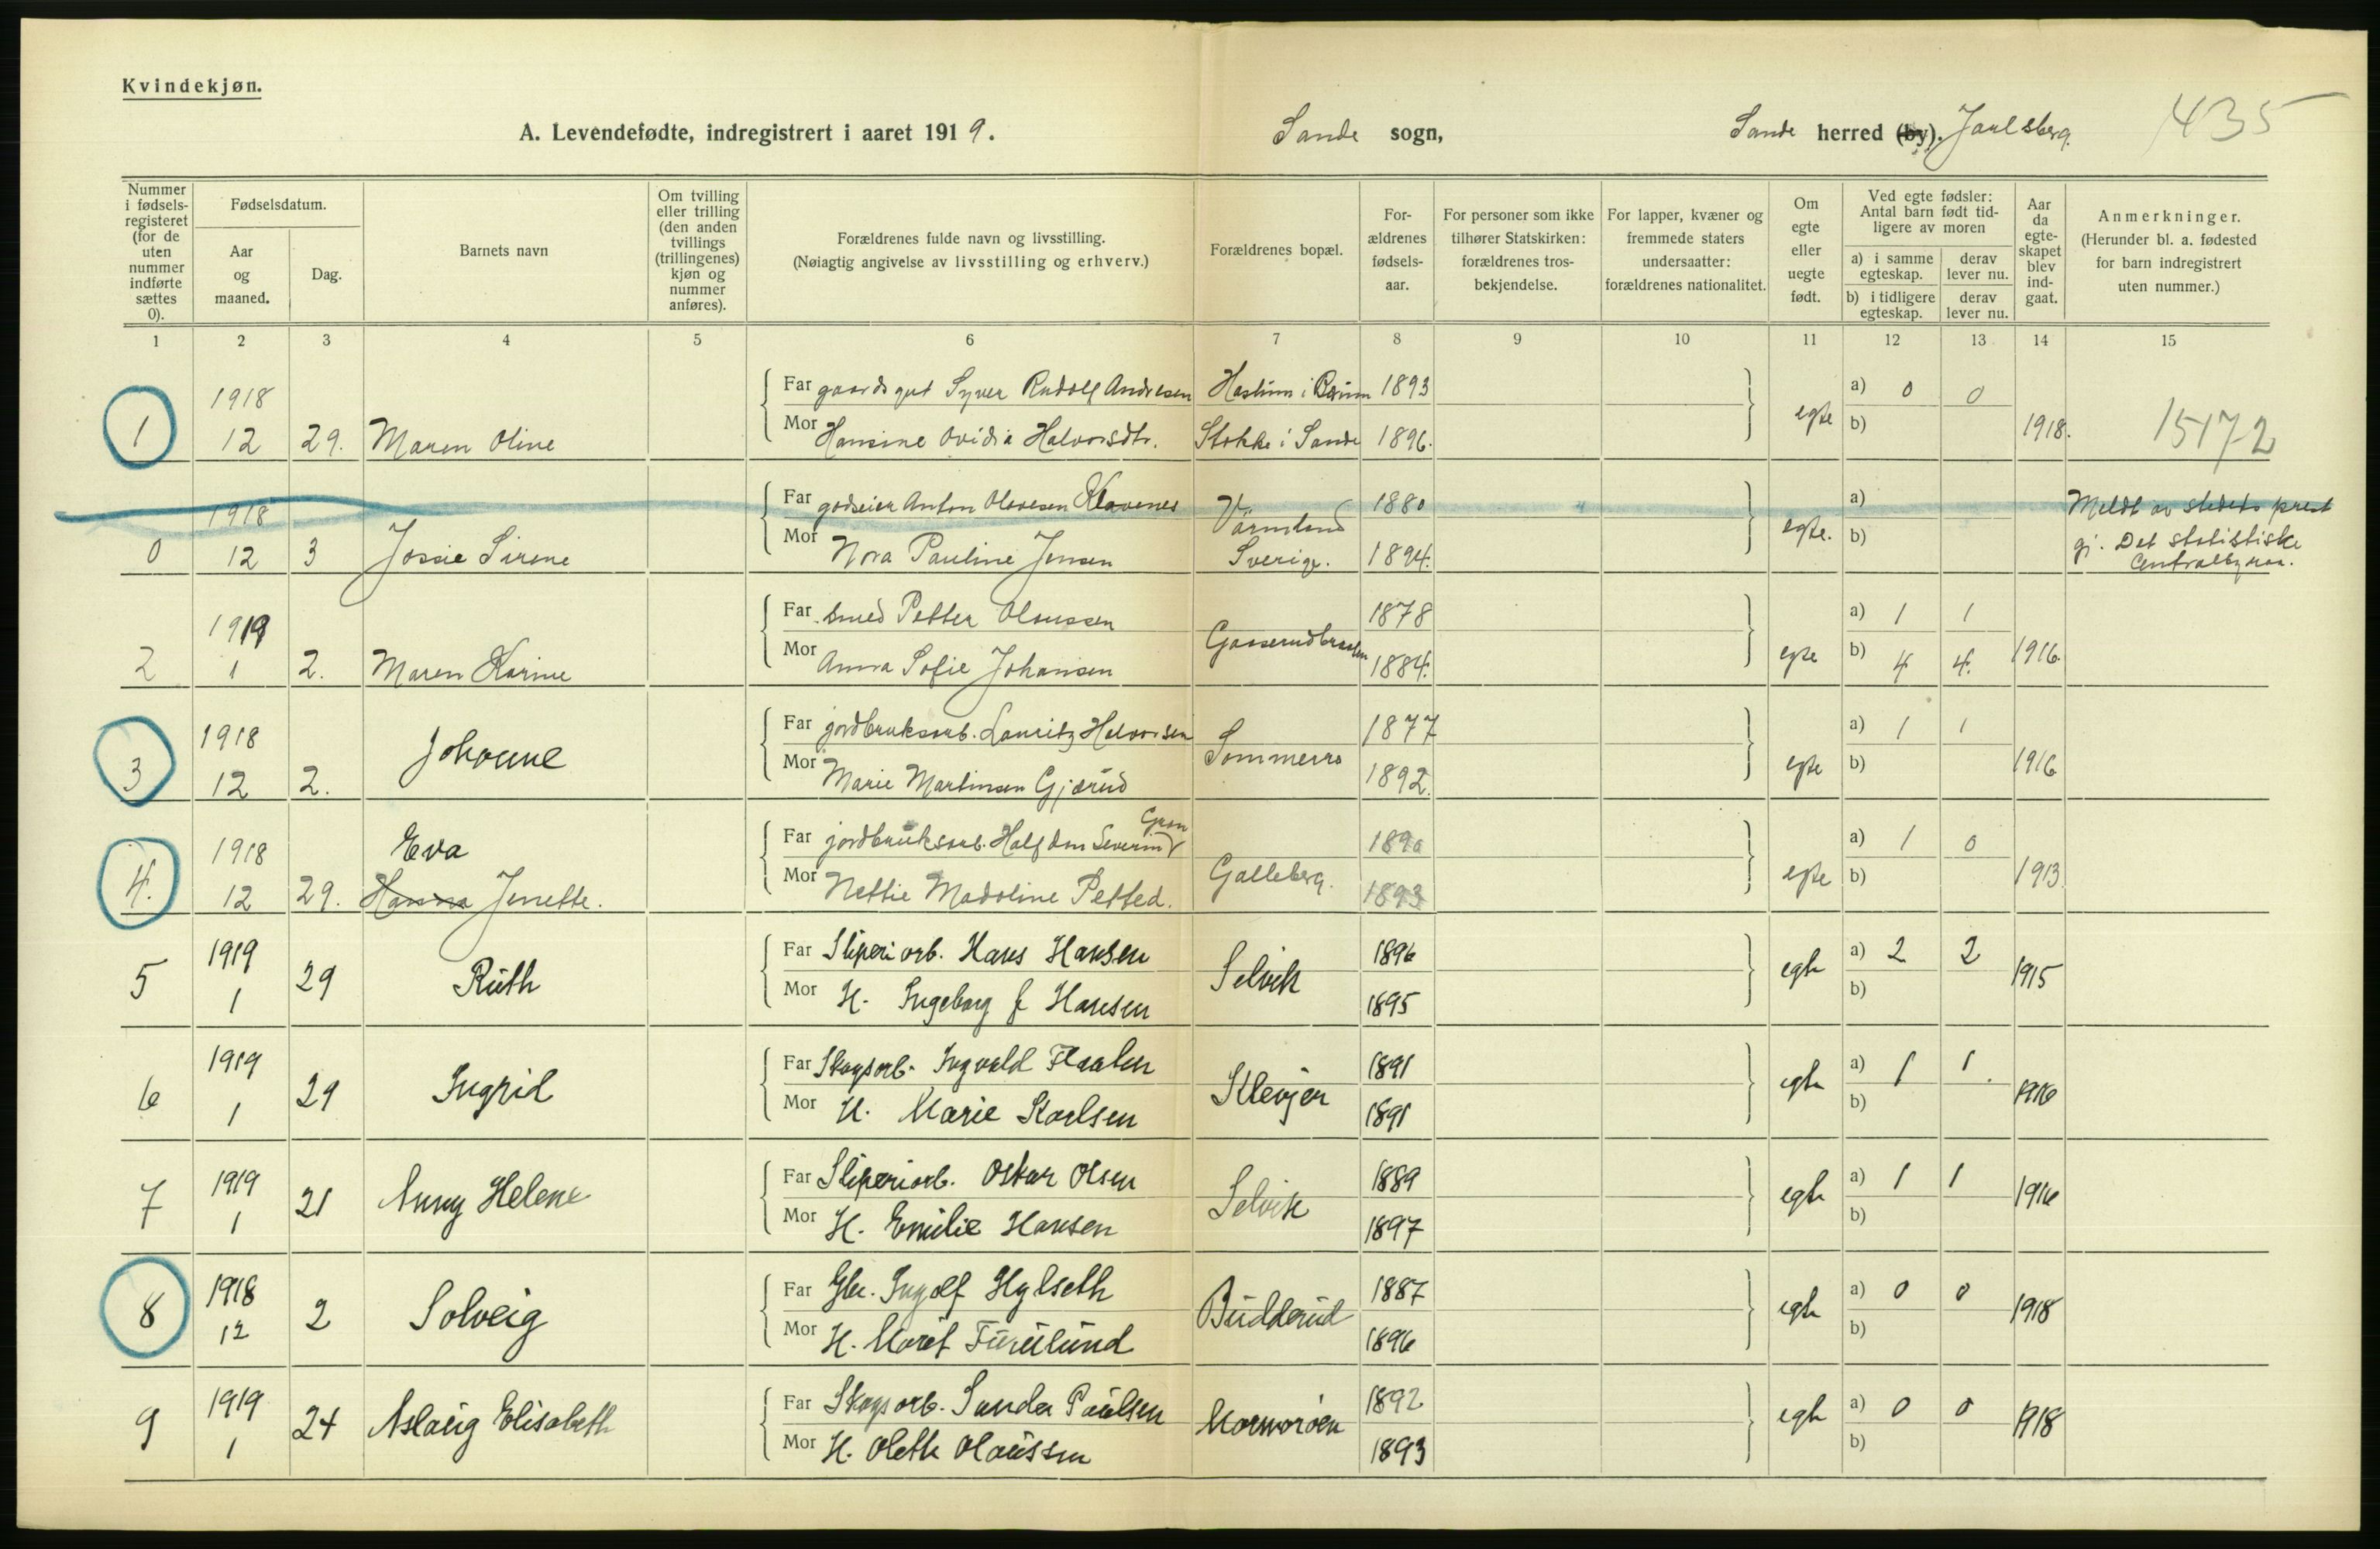 Kvindekjøn.
A. Levendefødte, indregistrert i aaret 1919. Sande sogn, Sande herred (by). Jarlsberg. 1435
Nummer i fødsels-registeret (for de uten nummer indførte sættes 0).
Fødselsdatum.
Aar og maaned.
Dag.
Barnets navn
Om tvilling eller trilling (den anden tvillings (trillingenes) kjøn og nummer anføres).
Forældrenes fulde navn og livsstilling. (Nøiagtig angivelse av livsstilling og erhverv.)
Forældrenes bopæl.
For-ældrenes fødsels-aar.
For personer som ikke tilhører Statskirken: forældrenes tros-bekjendelse.
For lapper, kvæner og fremmede staters undersaatter: forældrenes nationalitet.
Om egte eller uegte født.
Ved egte fødsler: Antal barn født tid-ligere av moren
a) i samme egteskap. derav lever nu.
b) i tidligere egteskap. derav lever nu.
Aar da egte-skapet blev ind-gaat.
Anmerkninger. (Herunder bl. a. fødested for barn indregistrert uten nummer.)
1 2 3 4 5 6 7 8 9 10 11 12 13 14 15
1918 Far gaardsgut Syver Rudolf Andresen Haslum i Bærum 1893 a) 0 0
1 12 29. Maren Oline Mor Hansine Ovidia Halvorsdtr. Stokke i Sande 1896. egte b) 1918. 15172
1918 Far godseier Anton Olavesen Klavenes Värmland 1880 a) Meldt av stedets prest
0 12 3 Jossie Sirene Mor Nora Pauline Jensen Sverige. 1894. egte. b) gj. Det statistiske Centralbyraa.
1919 Far smed Petter Olaussen 1878 a) 1 1
2 1 2. Maren Karine Mor Anna Sofie Johansen Gaaserudbraaten 1884. egte b) 4 4. 1916.
1918 Far jordbruksarb. Lauritz Halvorsen 1877 a) 1 1
3 12 2. Johanne Mor Marie Martinsen Gjærud Sommerro 1892. egte b) 1916
1918 Eva Far jordbruksarb. Halfdan Severin Gran 1890 a) 1 0
4. 12 29. Hanna Jenette. Mor Nettie Madoline Petted. Galleberg. 1893 egte b) 1913
1919 Far Sliperiarb. Hans Hansen 1896 a) 2 2
5 1 29 Ruth Mor H. Ingeborg f Hansen Selvik 1895 egte b) 1915
1919 Far Skogsarb. Ingvald Flaalen 1891 a) 1 1.
6 1 29 Ingrid Mor H. Marie Karlsen Klevjer 1891 egte b) 1916
1919 Far Sliperiarb. Oskar Olsen 1889 a) 1 1
7 1 21 Anny Helene Mor H. Emilie Hansen Selvik 1897 egte b) 1916
1918 Far Gbr. Ingolf Hylseth 1887 a) 0 0
8 12 2 Solveig Mor H. Marit Furulund Budderud 1896 egte b) 1918
1919 Far Skogsarb. Sander Paulsen 1892 a) 0 0
9 1 24 Aslaug Elisabeth Mor H. Olette Olaussen 1893 egte b) 1918